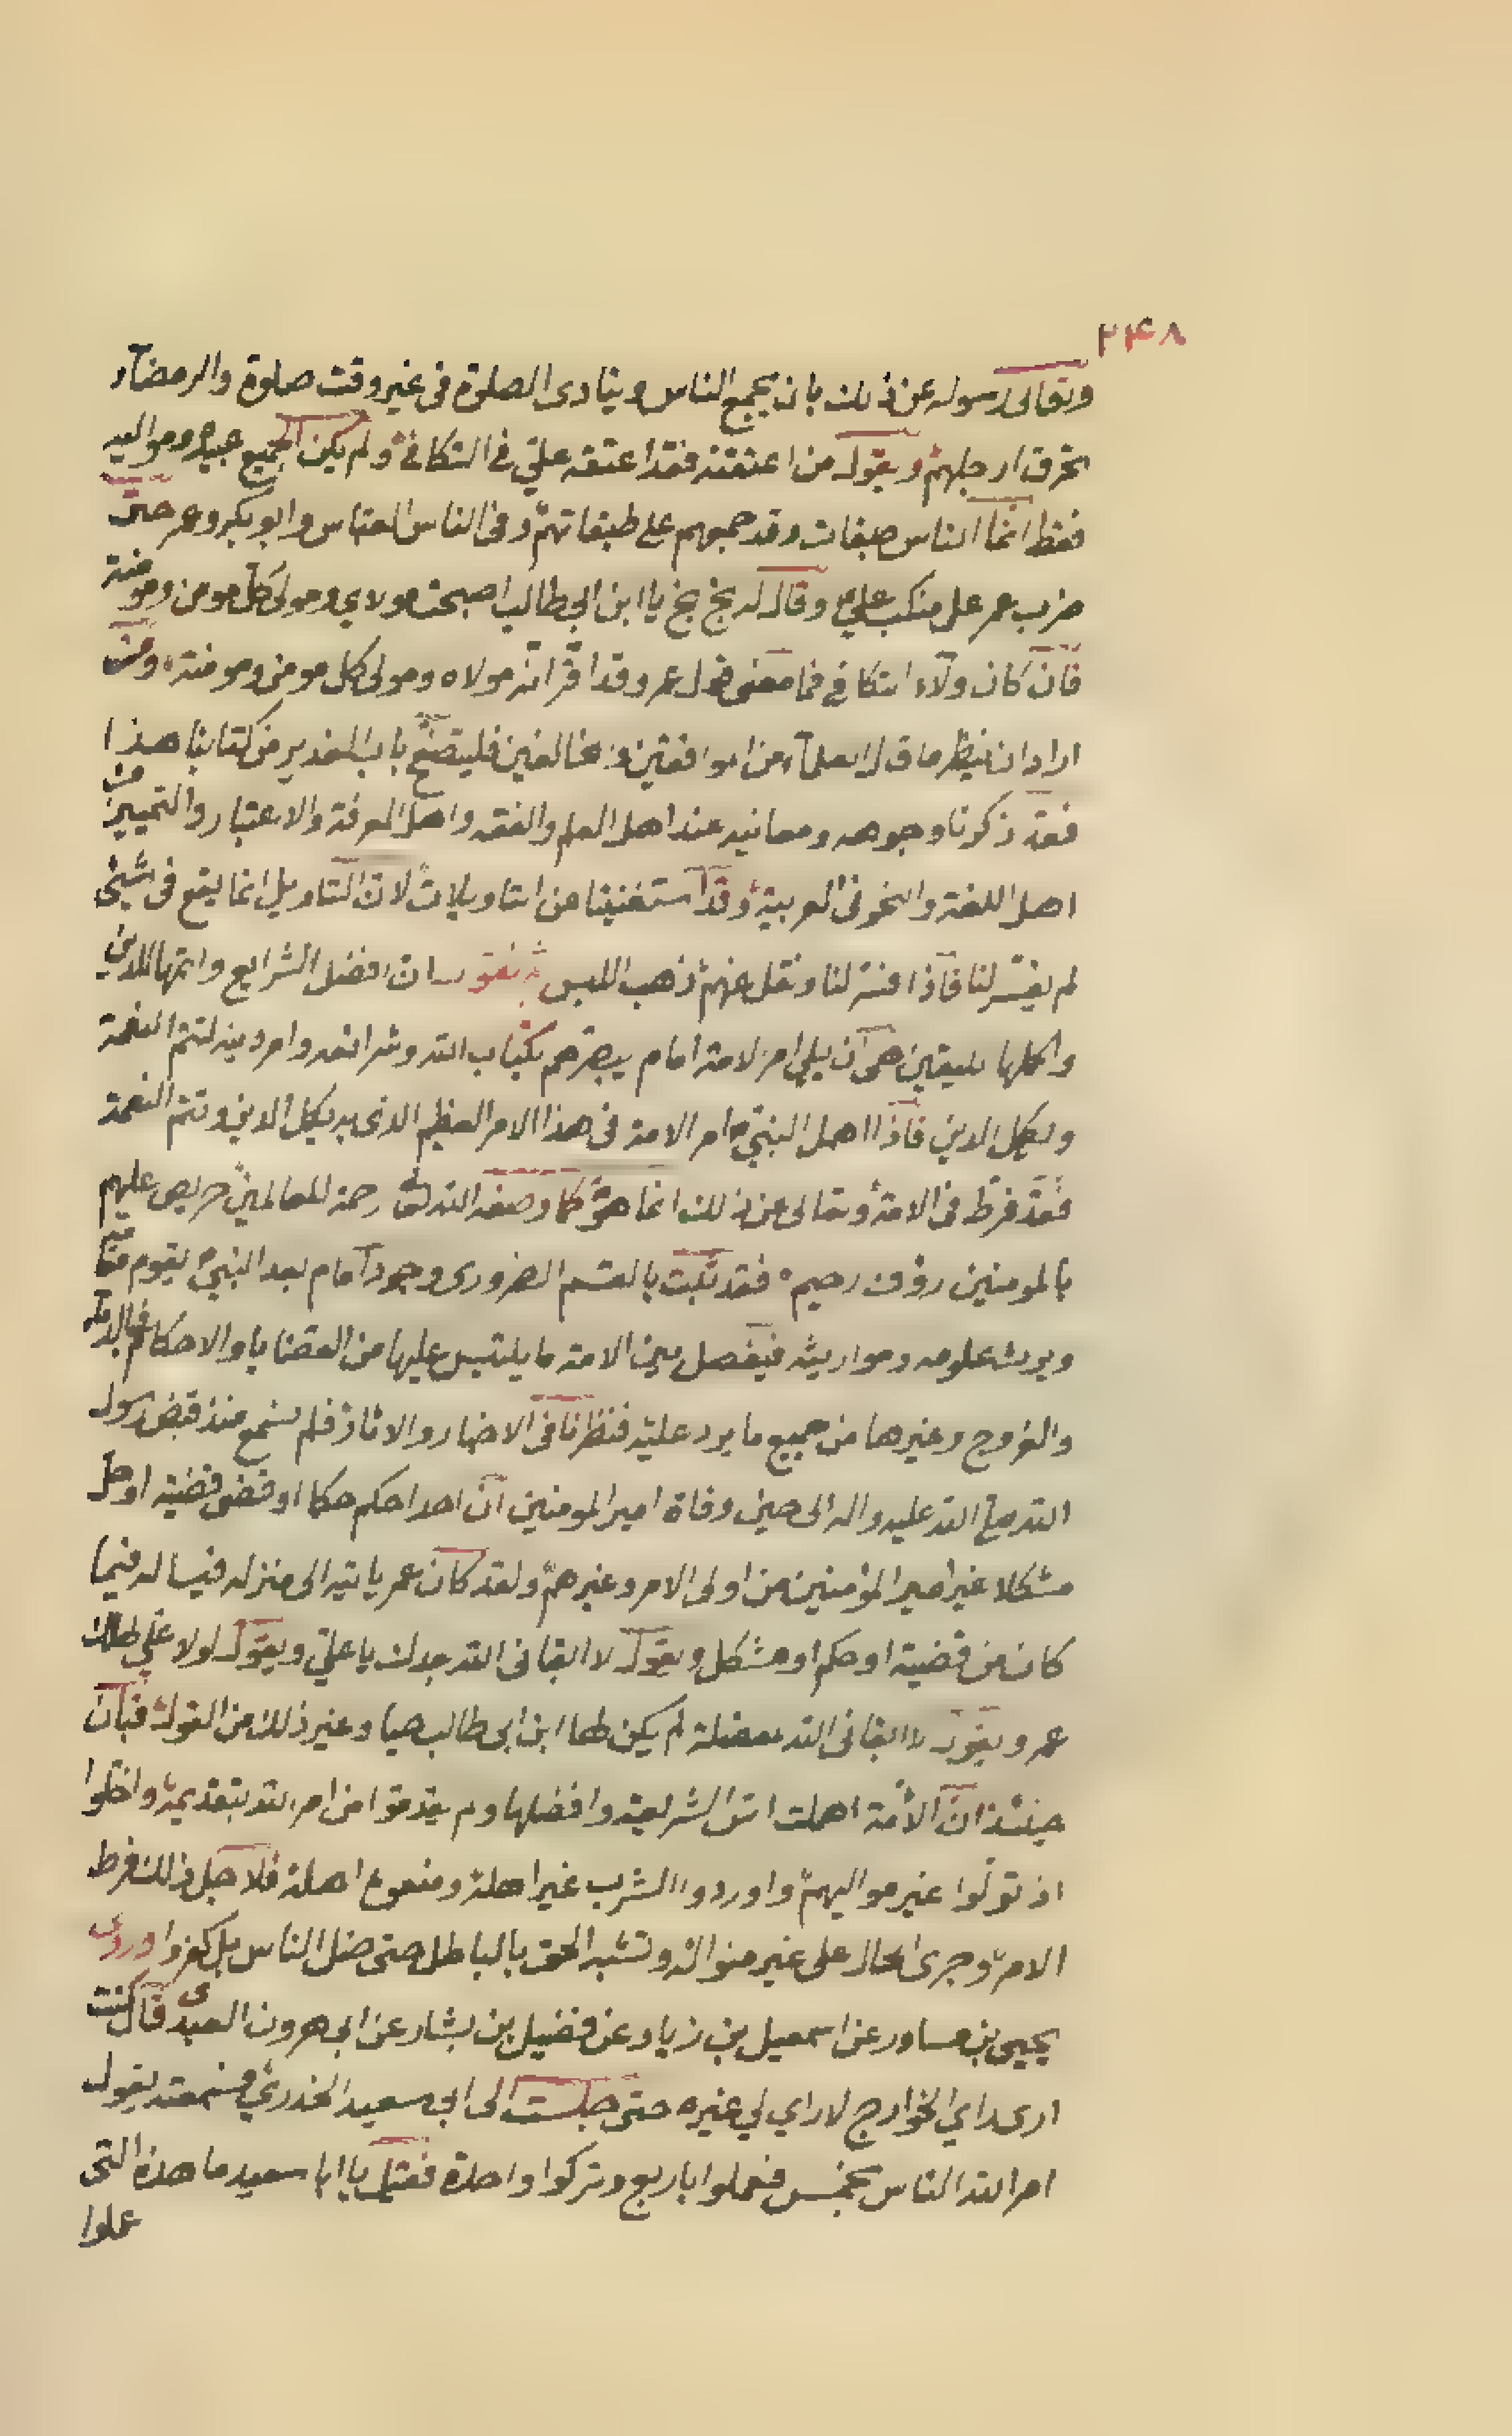 ۲۴۸
وتعالى رسوله عن ذلك بان يجمع الناس وينادى الصلوة فى غير وقت صلوة والرمضآء
تحرق ارجلهم ويقول من اعتقته فقد اعتقه علىّ فى التكافى ولم يكن الجميع عبيده ومواليه
فقط انّما الناس طبقات وقد جمعهم على طبقاتهم وفى الناس العباس وابو بكر وعمر حتّى
ضرب عمر على منكب علي ع وقال له بخ بخ يا ابن ابى طالب اصبحت مولاي ومولى كل مومن ومومنة
فان كان ولآء التكافي فما معنى قول عمر وقد اقرّ انّه مولاه ومولى كل مومن ومومنة ومن
اراد ان ينظر ما قال العلمآء من الموافقين والمخالفين فليتصفّح باب الغدير من كتابنا هذا
فقد ذكرنا وجوهه ومعانيه عند اهل العلم والفقه واهل المعرفة والاعتبار والتمييز من
اهل اللغة والنحو فى العربية وقد استغنينا من التاويلات لان التاويل انما يقع فى شيئ
لم يفسّر لنا فاذا فسّر لنا ونقل عنهم ذهب اللبس ثم نقول ان افضل الشرايع واتمها للدين
واكملها لليقين هى ان يلي امر الامة امام يبصرّهم بكتاب الله وشرائعه وامر دينه لتتم النعمة
ويكمل الدين فاذا اهمل النبيّ ص امر الامة فى هذا الامر العظيم الذى به يكمل الدين وتتم النعمة
فقد فرّط فى الامة وتعالى عن ذلك انما هو كما وصفه الله تعالى رحمة للعالمين حريص عليهم
بالمومنين رؤف رحيم فقد ثبت بالقسم الضرورى وجود امام بعد النبيّ يقوم مقامه
ويرث علومه ومواريثه فيفصل بين الامة ما يلتبس عليها من القضايا والاحكام فى الدماء
والفروج وغيرها من جميع ما يرد عليه فنظرنا فى الاخبار والاثار فلم نسمع منذ قبض رسول
الله صلى الله عليه واله الى حين وفاة امير المومنين انّ احدا حكم حكما او قضى قضية او حل
مشكلا غير امير المؤمنين من اولى الامر وغيرهم ولقد كان عمر ياتيه الى منزله فيساله فيما
كان من قضية او حكم او مشكل ويقول لا ابقانى الله بعدك يا علىّ ويقول لولا علي لهلك
عمر ويقول لا ابقانى الله لمعضلة لم يكن لها ابن ابى طالب حيا وغير ذلك من القول فبان
حينئذ انّ الامّة اهملت اسّ الشريعة وافضلها ولم يقدموا من امر الله بتقديمه واخلّوا
اذ تولّوا غير مواليهم واوردوا الشرب غير اهله ومنعوه اهله فلاجل ذلك فرط
الامر وجرى الحال على غير منواله وتشبه الحق بالباطل حتى ضل الناس بل كفروا وروى
يحيى بن مساور عن اسمعيل بن زياد عن فضيل بن بشار عن ابى هرون العبدى قال كنت
ارى راي الخوارج لا راي لي غيره حتى جلست الى ابى سعيد الخدري فسمعته يقول
امر الله الناس بخمس فعملوا باربع وتركوا واحدة فقيل يا ابا سعيد ما هذه التى
عملوا